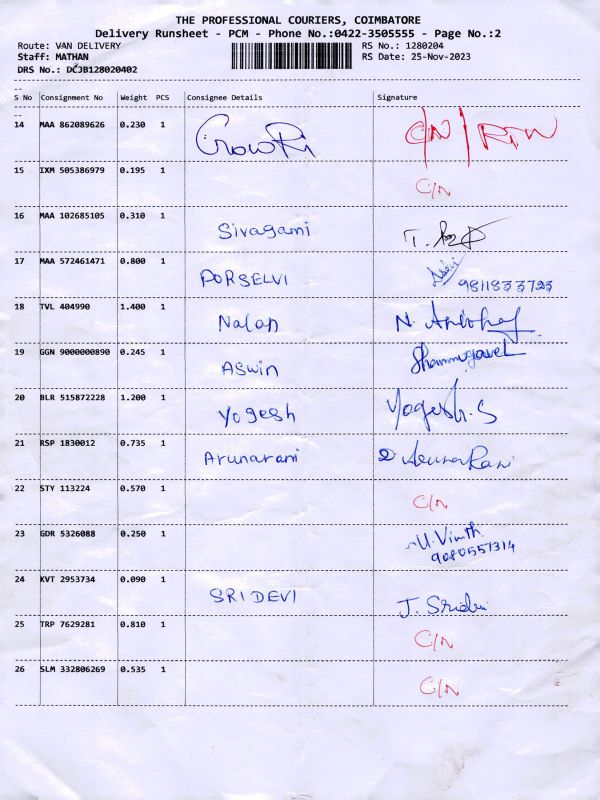 THE PROFESSIONAL COURIERS, COIMBATORE
Delivery Runsheet - PCM - Phone No.:0422-3505555 - Page No.:2
Route: VAN DELIVERY RS No.: 1280204
Staff: MATHAN RS Date: 25-Nov-2023
DRS No.: DCJB128020402
--
S No Consignment No Weight PCS Consignee Details Signature
--
14 MAA 862089626 0.230 1 GowRi C/N / RTN
15 IXM 505386979 0.195 1 C/N
16 MAA 102685105 0.310 1 Sivagami T.
17 MAA 572461471 0.800 1 PORSELVI 9811833723
18 TVL 404990 1.400 1 Nalan N.
19 GGN 9000000890 0.245 1 ASwin Shanmugavel
20 BLR 515872228 1.200 1 Yogesh Yogesh.S
21 RSP 1830012 0.735 1 Arunarani ArunaRani
22 STY 113224 0.570 1 C/N
23 GDR 5326088 0.250 1 U.Vinth
9080557314
24 KVT 2953734 0.090 1 SRIDEVI J. Sridevi
25 TRP 7629281 0.810 1 C/N
26 SLM 332806269 0.535 1 C/N